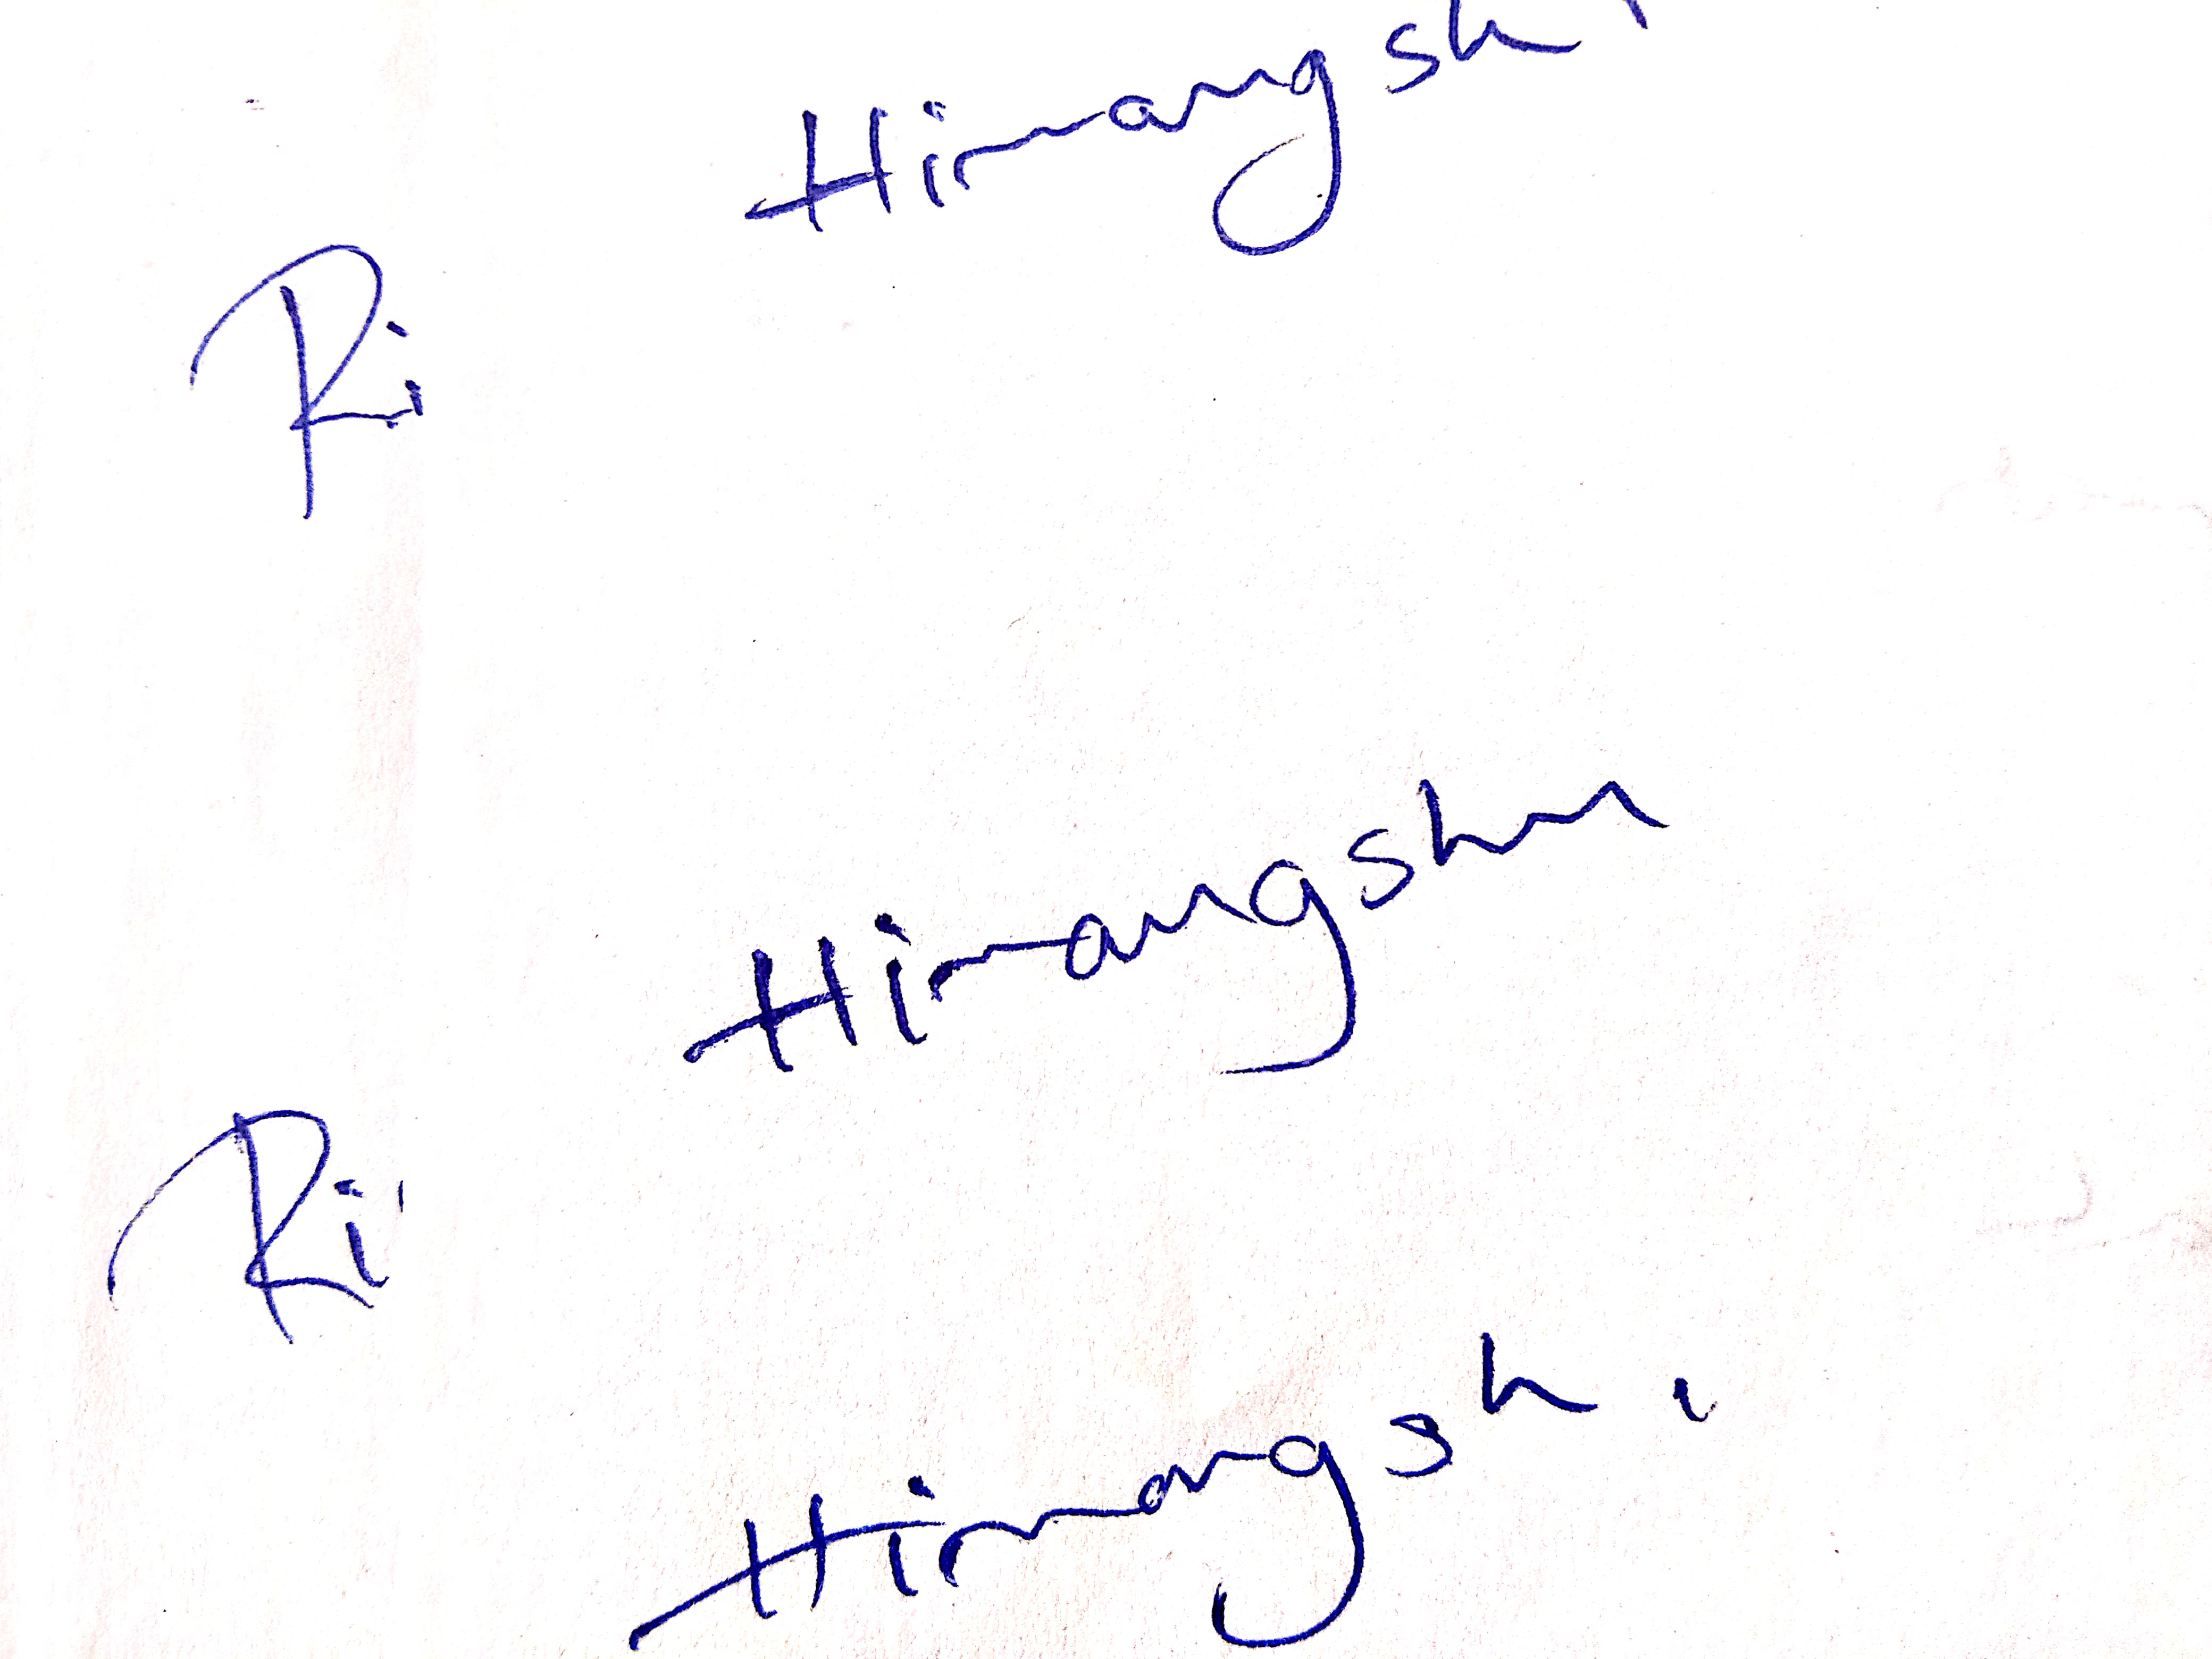 Himangsh
Ri
Himangshu
Ri
Himangsh